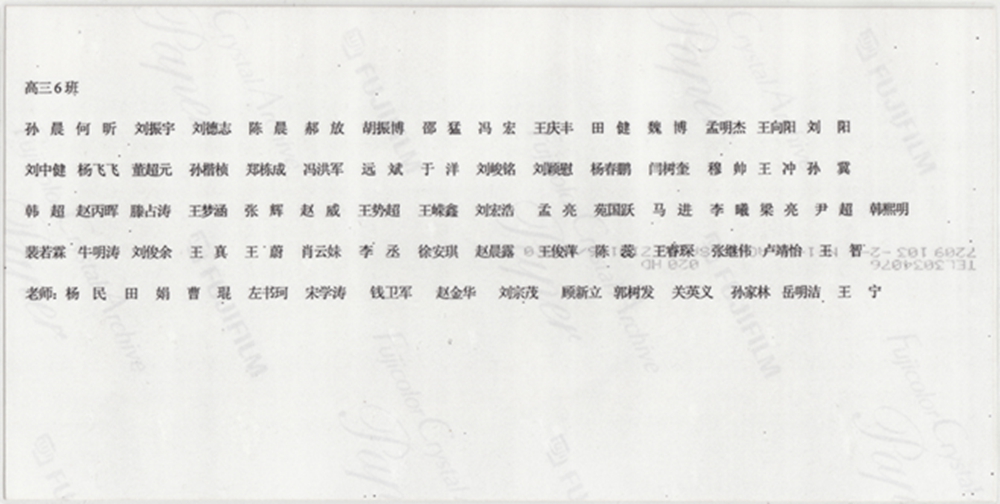 高三6班
孙 晨 何 昕 刘振宇 刘德志 陈 晨 郝 放 胡振博 邵 猛 冯 宏 王庆丰 田 健 魏 博 孟明杰 王向阳 刘 阳
刘中健 杨飞飞 董超元 孙楷桢 郑栋成 冯洪军 远 斌 于 洋 刘峻铭 刘颖慰 杨春鹏 闫树奎 穆 帅 王 冲 孙 冀
韩 超 赵丙晖 滕占涛 王梦涵 张 辉 赵 威 王势超 王嵘鑫 刘宏浩 孟 亮 苑国跃 马 进 李 曦 梁 亮 尹 超 韩熙明
裴若霖 牛明涛 刘俊余 王 真 王 蔚 肖云妹 李 丞 徐安琪 赵晨露 王俊萍 陈 蕊 王睿琛 张继伟 卢靖怡 王 智
老师: 杨 民 田 娟 曹 琨 左书珂 宋学涛 钱卫军 赵金华 刘宗茂 顾新立 郭树发 关英义 孙家林 岳明洁 王 宁
TEL3034076
020 HD
FUJIFILM
FUJIFILM
FUJIFILM
FUJIFILM
FUJIFILM
FUJIFILM
Fujicolor Crystal Archive Paper